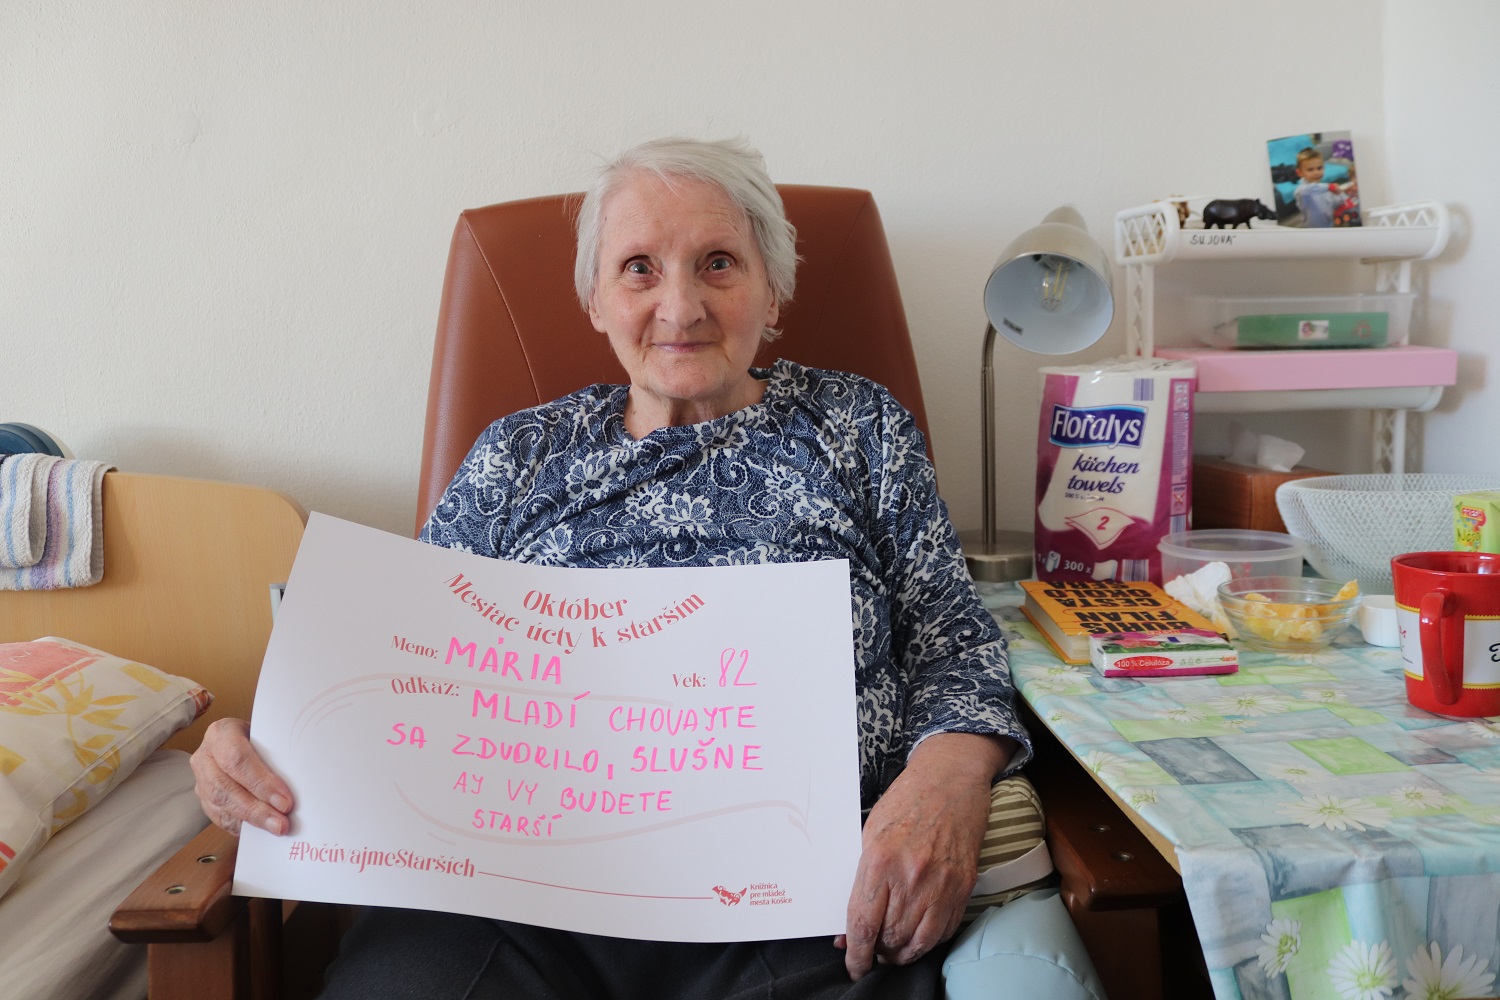 Október
Mesiac úcty k starším
Meno: MÁRIA
Vek: 82
Odkaz: MLADÍ CHOVAJTE
SA ZDVORILO, SLUŠNE
AJ VY BUDETE
STARŠÍ
#PočúvajmeStarších
Knižnica
pre mládež
mesta Košice
SUJOVÁ
Floralys
küchen
towels
2
300
CESTA
OKOLO
FILAN
100 % Celulóza